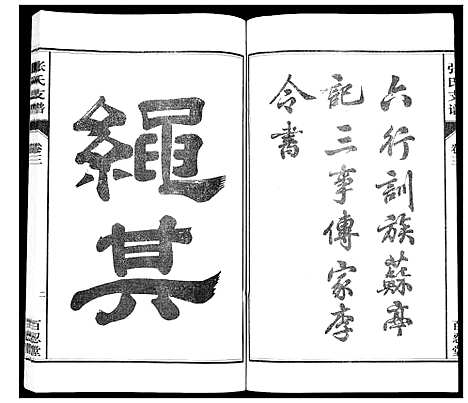 張氏支譜
卷三
百忍堂
六行訓族蘇亭
記三事傳家李
令書
繩其
張氏支譜
卷三
二
百忍堂